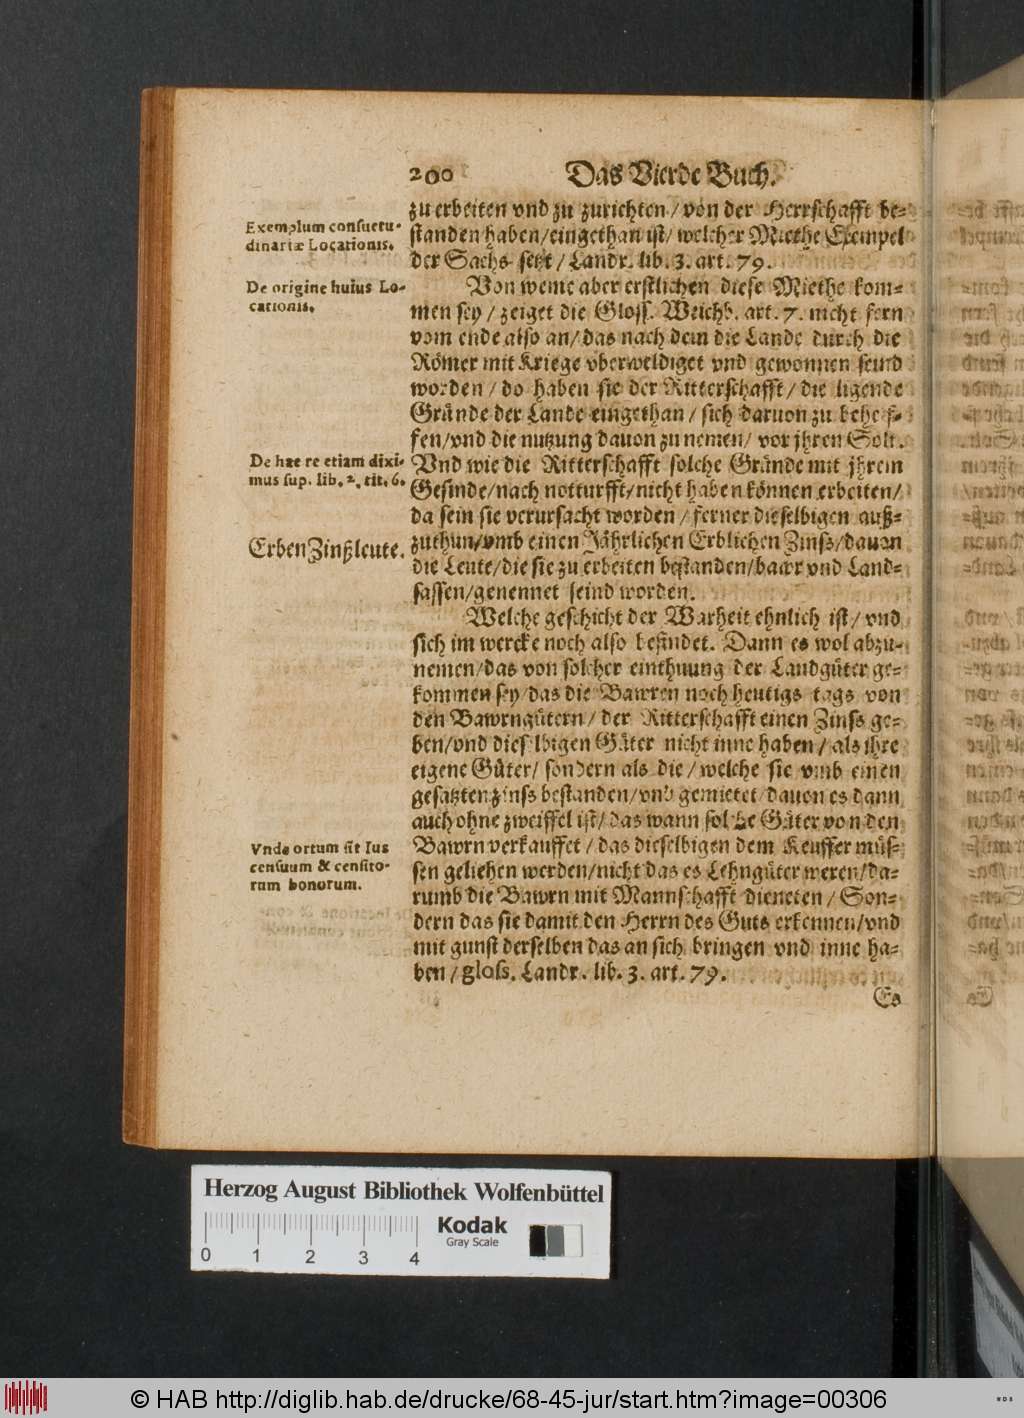 200 Das Vierde Buch.
zu erbeiten vnd zu zurichten / von der Herrschafft be-
Exemplum consuetu-
dinariæ Locationis.
standen haben / eingethan ist / welcher Miethe Exempel
der Sachs setzt / Landr. lib. 3. art. 79.
De origine huius Lo-
cationis.
Von weme aber erstlichen diese Miethe kom-
men sey / zeiget die Gloss. Weichb. art. 7. nicht fern
vom ende also an / das nach dem die Lande durch die
Römer mit Kriege vberweldiget vnd gewonnen seind
worden / do haben sie der Ritterschafft / die ligende
Gründe der Lande eingethan / sich daruon zu behelf-
fen / vnd die nutzung dauon zu nemen / vor jhren Solt.
De hac re etiam dixi-
mus sup. lib. 2. tit. 6.
Vnd wie die Ritterschafft solche Gründe mit jhrem
Gesinde / nach notturfft / nicht haben können erbeiten /
da sein sie verursacht worden / ferner dieselbigen auß-
ErbenZinßleute.
zuthun / vmb einen Jährlichen Erblichen Zinss / dauon
die Leute / die sie zu erbeiten bestanden / bawr vnd Land-
sassen / genennet seind worden.
Welche geschicht der Warheit ehnlich ist / vnd
sich im wercke noch also befindet. Dann es wol abzu-
nemen / das von solcher einthuung der Landgüter ge-
kommen sey / das die Bawren noch heutigs tags von
den Bawrngütern / der Ritterschafft einen Zinss ge-
ben / vnd dieselbigen Güter nicht inne haben / als ihre
eigene Güter / sondern als die / welche sie vmb einen
gesatzten zinss bestanden / vnd gemietet / dauon es dann
auch ohne zweiffel ist / das wann solche Güter von den
Vnde ortum sit Ius
censuum & censito-
rum bonorum.
Bawrn verkauffet / das dieselbigen dem Keuffer müs-
sen geliehen werden / nicht das es Lehngüter weren / da-
rumb die Bawrn mit Mannschafft dieneten / Son-
dern das sie damit den Herrn des Guts erkennen / vnd
mit gunst derselben das an sich bringen vnd inne ha-
ben / gloss. Landr. lib. 3. art. 79.
Es
Herzog August Bibliothek Wolfenbüttel
Kodak
Gray Scale
0 1 2 3 4
© HAB http://diglib.hab.de/drucke/68-45-jur/start.htm?image=00306